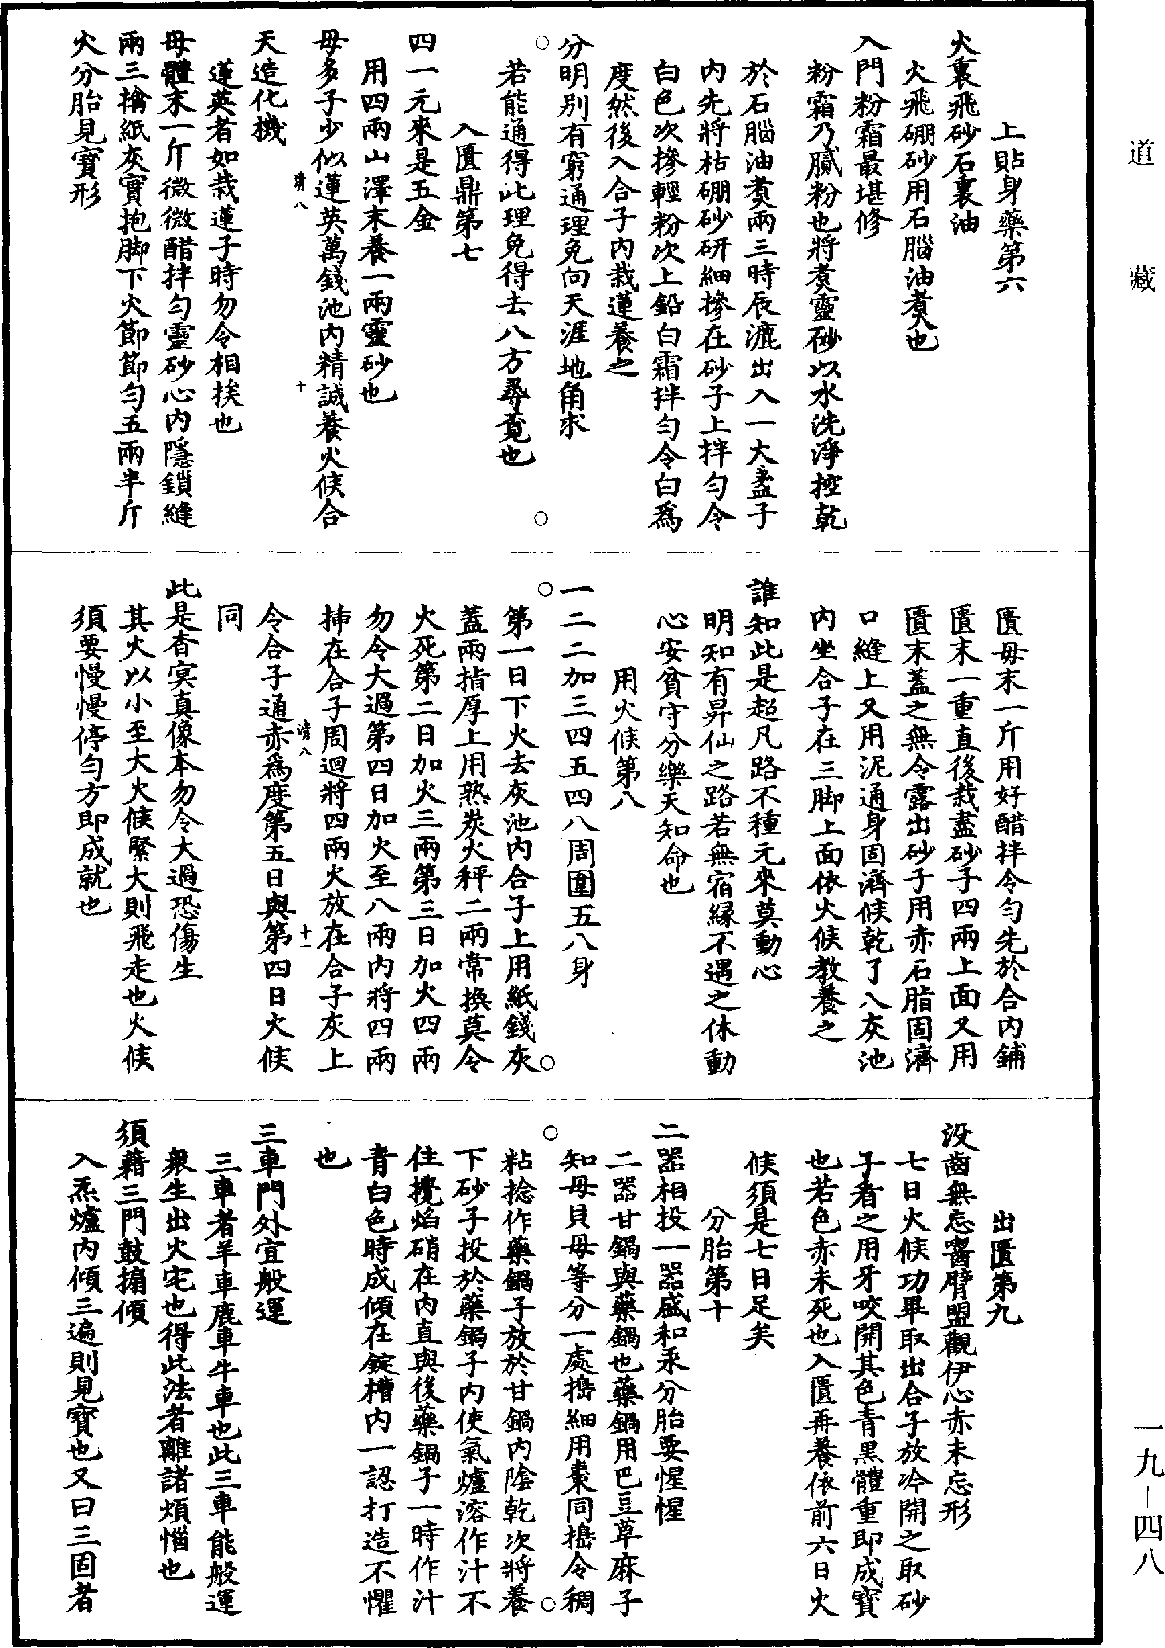 道藏
上貼身藥第六
火裏飛砂石裏油
火飛硼砂用石腦油煑也
入門粉霜最堪修
粉霜乃膩粉也將煑靈砂以水洗淨控乾
於石腦油煑兩三時辰漉出入一大盞子
內先將枯硼砂研細摻在砂子上拌勻令
白色次摻輕粉次上鉛白霜拌勻令白爲
度然後入合子內栽蓮養之
分明別有窮通理免向天涯地角求
若能通得此理免得去八方尋覓也
入匱鼎第七
四一元來是五金
用四兩山澤末養一兩靈砂也
母多子少似蓮英萬錢池內精誠養火候合
天造化機
蓮英者如栽蓮子時勿令相挨也
母體末一斤微微醋拌勻靈砂心內隱鎖縫
兩三擒紙灰實抱脚下火節節勻五兩半斤
火分胎見寶形
匱母末一斤用好醋拌令勻先於合內鋪
匱末一重直後栽盡砂子四兩上面又用
匱末蓋之無令露出砂子用赤石脂固濟
口縫上又用泥通身固濟候乾了入灰池
內坐合子在三脚上面依火候教養之
誰知此是超凡路不種元來莫動心
明知有昇仙之路若無宿緣不遇之休動
心安貧守分樂天知命也
用火候第八
一二二加三四五四八周圍五八身
第一日下火去灰池內合子上用紙錢灰
蓋兩指厚上用熟炭火秤二兩常換莫令
火死第二日加火三兩第三日加火四兩
勿令大過第四日加火至八兩內將四兩
揷在合子周迴將四兩火放在合子灰上
令合子通赤爲度第五日與第四日火候
同
此是杳冥真像本勿令大過恐傷生
其火以小至大火候緊大則飛走也火候
須要慢慢停勻方即成就也
出匱第九
沒齒無忘齧臂盟觀伊心赤未忘形
七日火候功畢取出合子放冷開之取砂
子者之用牙咬開其色青黑體重即成寶
也若色赤未死也入匱再養依前六日火
候須是七日足矣
分胎第十
二器相投一器盛和汞分胎要惺惺
二器甘鍋與藥鍋也藥鍋用巴豆草麻子
知母貝母等分一處擣細用棗同擣令稠
粘捻作藥鍋子放於甘鍋內陰乾次將養
下砂子投於藥鍋子內使氣爐溶作汁不
住攪焰硝在內直與後藥鍋子一時作汁
青白色時成傾在錠槽內一認打造不懼
也
三車門外宜般運
三車者羊車鹿車牛車也此三車能般運
衆生出火宅也得此法者離諸煩惱也
須藉三門鼓搧傾
入炁爐內傾三遍則見寶也又曰三固者
一九—四八